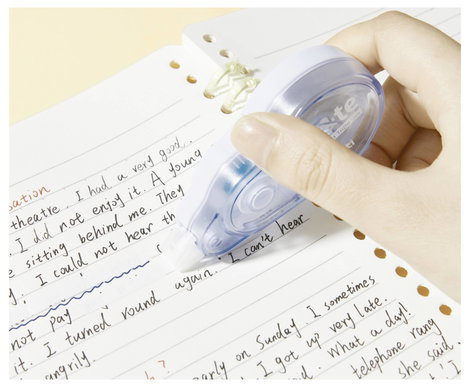 theatre. I had a very good
. I did not enjoy it. A young
e sitting behind me. They
y, I could not hear th
not pay
it. I turned round again. I can't hear
angrily
?
early on Sunday I sometimes
. I got up very late.
d. What a day!
telephone rang
she said.